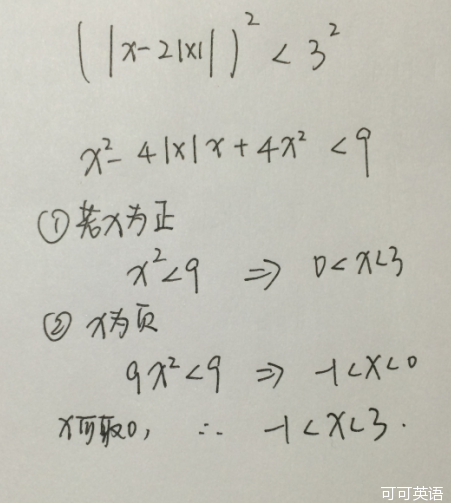 (|x-2|x||)² < 3²
x²- 4|x|x + 4x² < 9
① 若x为正
x² < 9 ⇒ 0 < x < 3
② x为页
9x² < 9 ⇒ -1 < x < 0
x可取0, ∴ -1 < x < 3.
可可英语